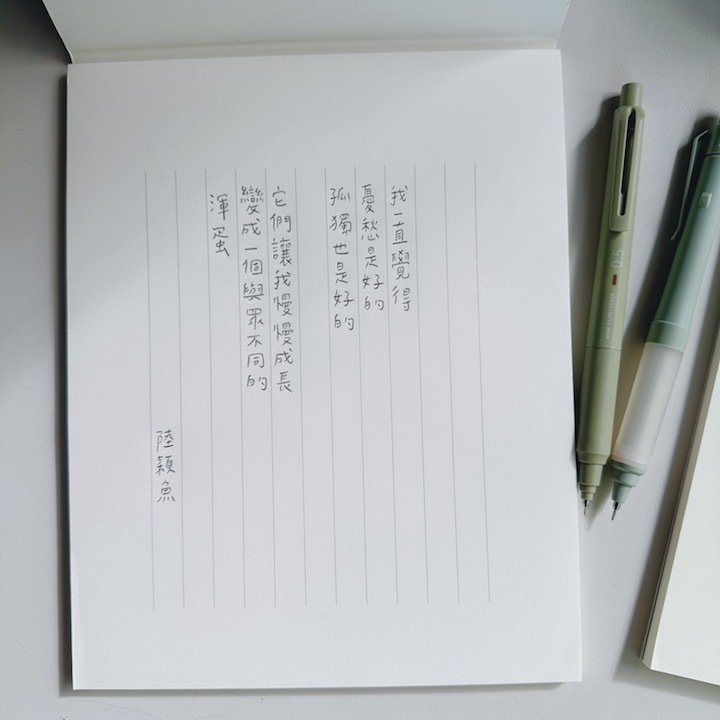 我一直覺得
憂愁是好的
孤獨也是好的
它們讓我慢慢成長
變成一個與眾不同的
渾蛋
陸穎魚
0.5